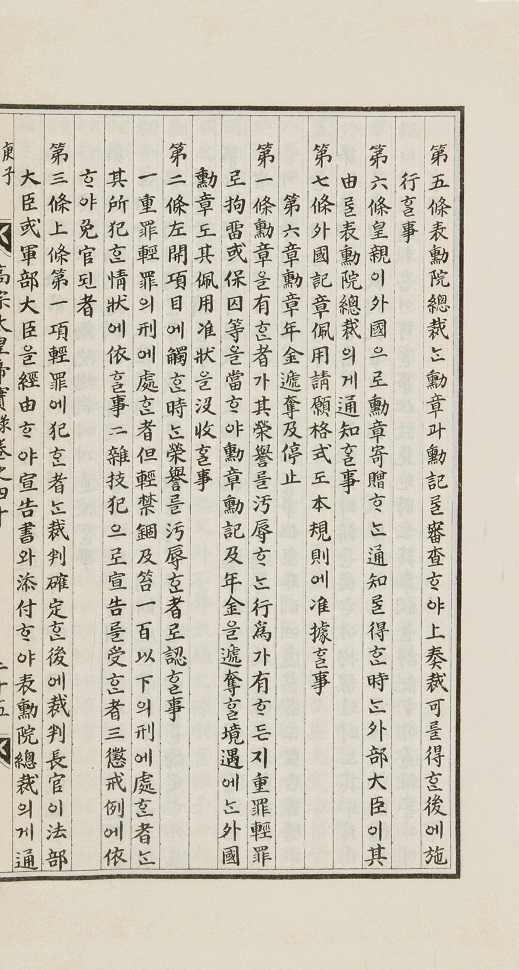 第五條表勳院總裁는勳章과勳記를審查ᄒᆞ야上奏裁可를得ᄒᆞᆫ後에施
行ᄒᆞᆯ事
第六條皇親이外國으로勳章寄贈ᄒᆞ는通知를得ᄒᆞᆫ時는外部大臣이其
由를表勳院總裁의게通知ᄒᆞᆯ事
第七條外國記章佩用請願格式도本規則에准據ᄒᆞᆯ事
第六章勳章年金遞奪及停止
第一條勳章을有ᄒᆞᆫ者가其榮譽를汚辱ᄒᆞ는行爲가有ᄒᆞ든지重罪輕罪
로拘留或保囚等을當ᄒᆞ야勳章勳記及年金을遞奪ᄒᆞᆯ境遇에는外國
勳章도其佩用准狀을沒收ᄒᆞᆯ事
第二條左開項目에觸ᄒᆞᆫ時는榮譽를汚辱ᄒᆞᆫ者로認ᄒᆞᆯ事
一重罪輕罪의刑에處ᄒᆞᆫ者但輕禁錮及笞一百以下의刑에處ᄒᆞᆫ者는
其所犯ᄒᆞᆫ情狀에依ᄒᆞᆯ事二雜技犯으로宣告를受ᄒᆞᆫ者三懲戒例에依
ᄒᆞ야免官된者
第三條上條第一項輕罪에犯ᄒᆞᆫ者는裁判確定ᄒᆞᆫ後에裁判長官이法部
大臣或軍部大臣을經由ᄒᆞ야宣告書와添付ᄒᆞ야表勳院總裁의게通
庚子
高宗太皇帝實錄卷之四十
二十五